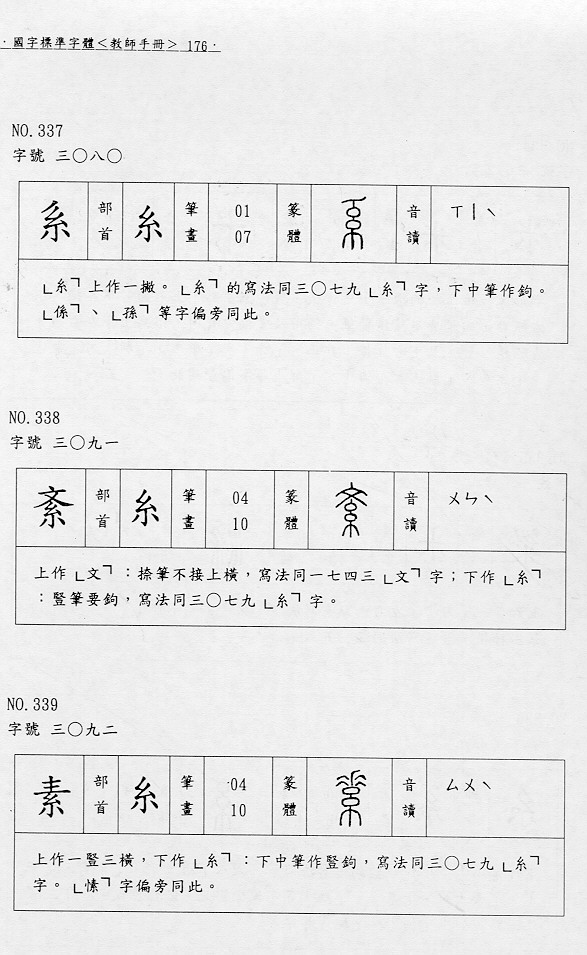 ·國字標準字體<教師手冊> 176·
NO.337
字號 三○八○
系 部首 糸 筆畫 01 07 篆體 音讀 ㄒㄧˋ
「糸」上作一撇。「糸」的寫法同三○七九「糸」字，下中筆作鉤。
「係」、「孫」等字偏旁同此。
NO.338
字號 三○九一
紊 部首 糸 筆畫 04 10 篆體 音讀 ㄨㄣˋ
上作「文」：捺筆不接上橫，寫法同一七四三「文」字；下作「糸」
：豎筆要鉤，寫法同三○七九「糸」字。
NO.339
字號 三○九二
素 部首 糸 筆畫 04 10 篆體 音讀 ㄙㄨˋ
上作一豎三橫，下作「糸」：下中筆作豎鉤，寫法同三○七九「糸」
字。「愫」字偏旁同此。